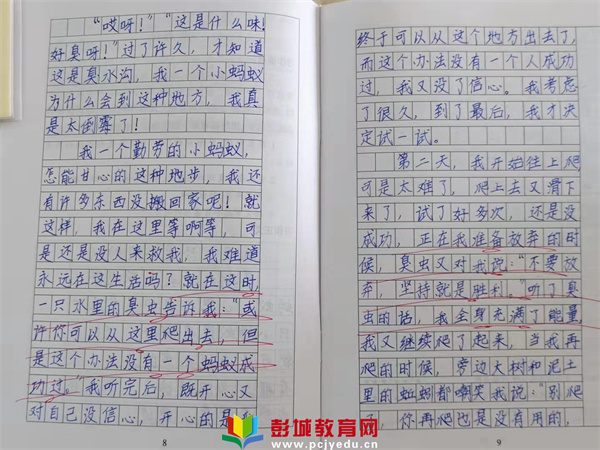 “哎呀!”“这是什么味!
好臭呀!”过了许久,才知道
这是臭水沟,我一个小蚂蚁
为什么会到这种地方,我真
是太倒霉了!
我一个勤劳的小蚂蚁,
怎能甘心的这种地步,我还
有许多东西没搬回家呢!就
这样,我在这里等啊等,可
是还是没人来救我,我难道
永远在这生活吗?就在这时,
一只水里的臭虫告诉我:“或
许你可以从这里爬出去,但
是这个办法没有一个蚂蚁成
功过。”我听完后,既开心又
对自己没信心,开心的是我
8
终于可以从这个地方出去了,
而这个办法没有一个人成功
过,我又没了信心。我考虑
了很久,到了最后,我才决
定试一试。
第二天,我开始往上爬
可是太难了,爬上去又滑下
来了,试了好多次,还是没
成功,正在我准备放弃的时
候,臭虫又对我说:“不要放
弃,坚持就是胜利。”听了臭
虫的话,我全身充满了能量,
我又继续爬了起来,当我再
爬的时候,旁边大树和泥土
里的蚯蚓都嘲笑我说:“别爬
了,你再爬也是没有用的,
9
彭城教育网
www.pcjyedu.cn